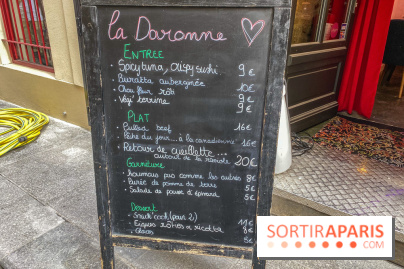 La Daronne
ENTREE
- Spicy tuna, crispy sushi 9€
- Burratta aubergine 10€
- Chou fleur rôti 9€
- Végi' terrine 9€
PLAT
- Pulled beef 16€
- Pêche du jour... à la canadienne 16€
- Retour de cueillette... 20€
autour de la
Garniture
- houmous pas comme les autres 8€
- Purée de pomme de terre 5€
- Salade de pousse d'épinard 5€
Dessert
- (pour 2) 11€
- Figues rôties & ricotta 8€
- Glaces 5€
SORTIRAPARIS
.COM